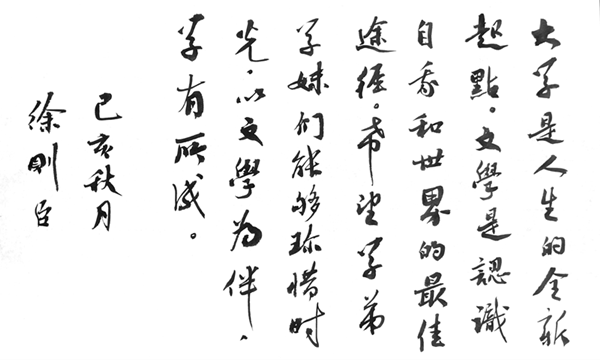 大学是人生的全新
起點。文學是認識
自我和世界的最佳
途径。希望学弟
学妹们能够珍惜时
光，以文學为伴，
学有所成。
己亥秋月
徐则臣